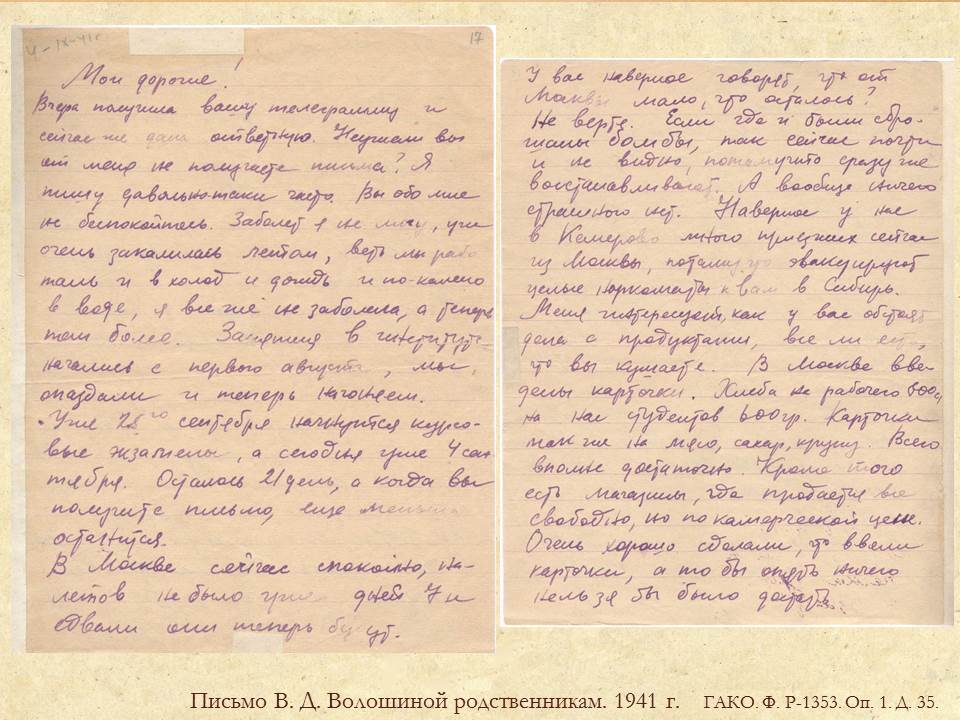 4-IX-41г
17
Мои дорогие!
Вчера получила вашу телеграмму и
сейчас же дала ответную. Неужели вы
от меня не получаете письма? Я
пишу довольно-таки часто. Вы обо мне
не беспокойтесь. Заболеть я не могу, уже
очень закалилась летом, ведь мы рабо
тали и в холод и дождь и по-колено
в воде, я все же не заболела, а теперь
тем более. Занятия в институте
начались с первого августа, мы
опоздали и теперь нагоняем.
Уже 25го сентября начнутся курсо-
вые экзамены, а сегодня уже 4 сен
тября. Остался 21 день, а когда вы
получите письмо, еще меньше
останется.
В Москве сейчас спокойно, на-
летов не было уже дней 7 и
едвали они теперь будут.
У вас наверное говорят, что от
Москвы мало, что осталось?
Не верте. Если где и были сбро-
шены бомбы, так сейчас почти
и не видно, потомучто сразу же
восстанавливают. А вообще ничего
страшного нет. Наверное у нас
в Кемерово много приезжих сейчас
из Москвы, потому что эвакуируют
целые наркоматы к вам в Сибирь.
Меня интересует, как у вас обстоят
дела с продуктами, все ли есть,
что вы кушаете. В Москве вве-
дены карточки. Хлеба на рабочего 800гр
на нас студентов 600гр. Карточки
также на мясо, сахар, крупу. Всего
вполне достаточно. Кроме того
есть магазины, где продается все
свободно, но по камерческой цене.
Очень хорошо сделали, что ввели
карточки, а то бы опять ничего
нельзя бы было достать
Письмо В. Д. Волошиной родственникам. 1941 г. ГАКО. Ф. Р-1353. Оп. 1. Д. 35.